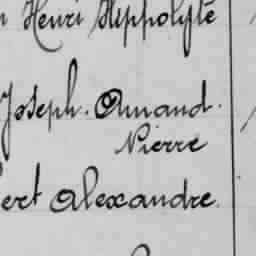 Henri Hippolyte
Joseph. Amand.
Pierre
ert Alexandre.